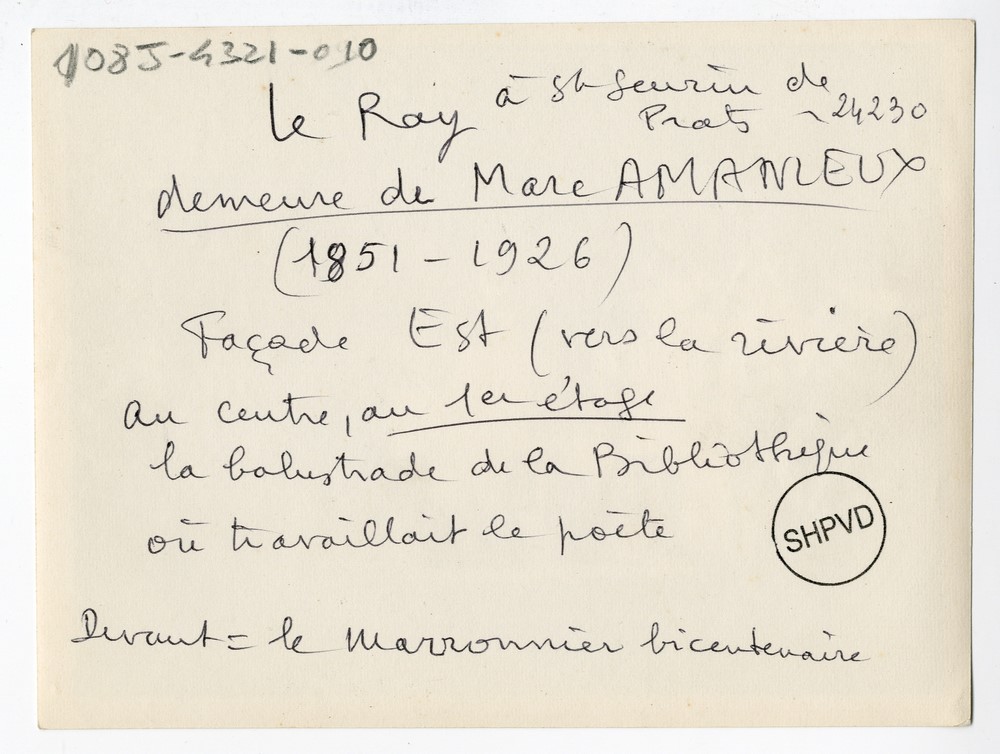 108J-4321-010
le Roy à St Seurin de
Prats ~ 24230
demeure de Marc AMANIEUX
(1851 - 1926)
Façade Est (vers la rivière)
au centre, au 1er étage
la balustrade de la Bibliothèque
où travaillait le poète
SHPVD
Devant = le Marronnier bicentenaire